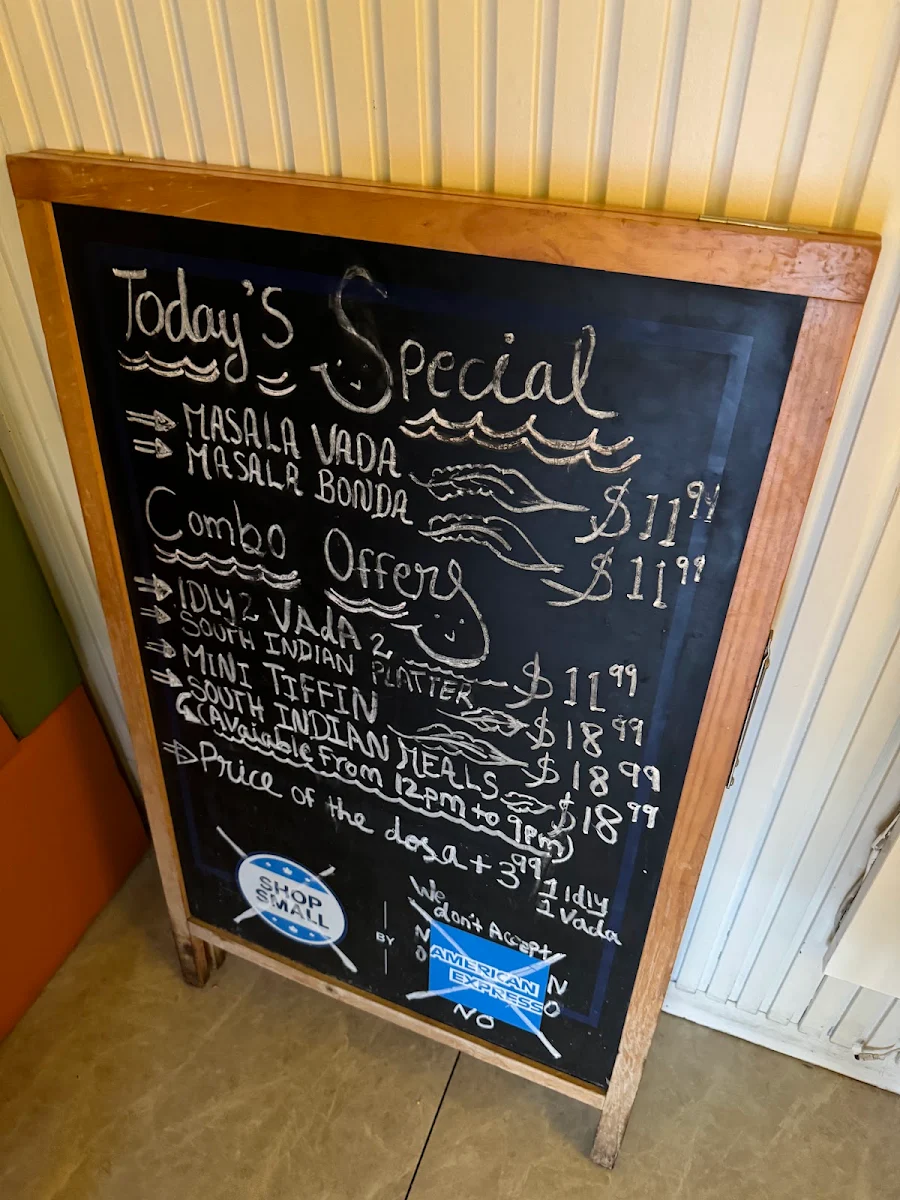 Today'S Special
⇒ MASALA VADA $11.99
⇒ MASALA BONDA $11.99
Combo Offers
⇒ IDLY 2 VAdA 2 $11.99
⇒ SOUTH INDIAN PLATTER $18.99
⇒ MINI TIFFIN $18.99
⇒ SOUTH INDIAN MEALS $18.99
(Avaiable From 12pm to 9pm)
⇒ Price of the dosa + 3.99 / 1 Idly
1 Vada
SHOP
SMALL
BY
We
don't Accept
NO
AMERICAN
EXPRESS
NO
NO